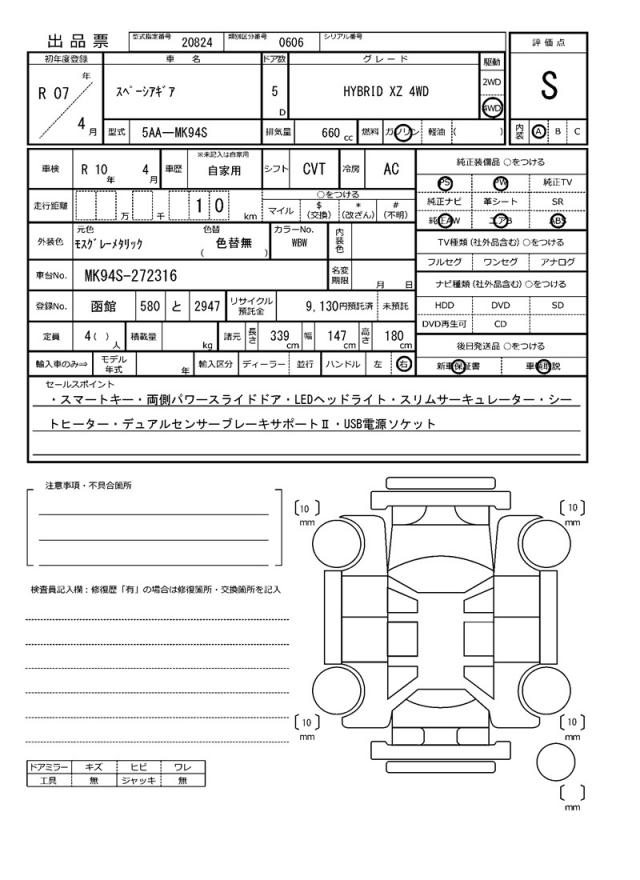 出品票 型式指定番号 20824 類別区分番号 0606 シリアル番号
初年度登録 車名 ドア数 グレード 駆動 評価点
R 07 年 4 月 スペーシアギア 5 D HYBRID XZ 4WD 2WD 4WD S
型式 5AA―MK94S 排気量 660 cc 燃料 ガソリン 軽油 ( ) 内装 A B C
車検 R 10 年 4 月 車歴 ※未記入は自家用 自家用 シフト CVT 冷房 AC
走行距離 万 千 1 0 km ○をつける マイル $(交換) *(改ざん) #(不明)
外装色 元色 モスグレーメタリック 色替 ( 色替無 ) カラーNo. WBW 内装色
車台No. MK94S-272316 名変期限 月 日
登録No. 函館 580 と 2947 リサイクル預託金 9,130円預託済 未預託
定員 4( )人 積載量 kg 諸元 長さ 339 cm 幅 147 cm 高さ 180 cm
輸入車のみ⇒ モデル年式 年 輸入区分 ディーラー 並行 ハンドル 左 右
純正装備品 ○をつける
PS PW 純正TV
純正ナビ 革シート SR
純正AW エアB ABS
TV種類(社外品含む)○をつける
フルセグ ワンセグ アナログ
ナビ種類(社外品含む)○をつける
HDD DVD SD
DVD再生可 CD
後日発送品 ○をつける
新車保証書 車輌取説
セールスポイント
・スマートキー・両側パワースライドドア・LEDヘッドライト・スリムサーキュレーター・シー
トヒーター・デュアルセンサーブレーキサポートⅡ・USB電源ソケット
注意事項・不具合箇所
検査員記入欄：修復歴「有」の場合は修復箇所・交換箇所を記入
[10] mm
[10] mm
[10] mm
[10] mm
[ ] mm
ドアミラー キズ ヒビ ワレ
工具 無 ジャッキ 無